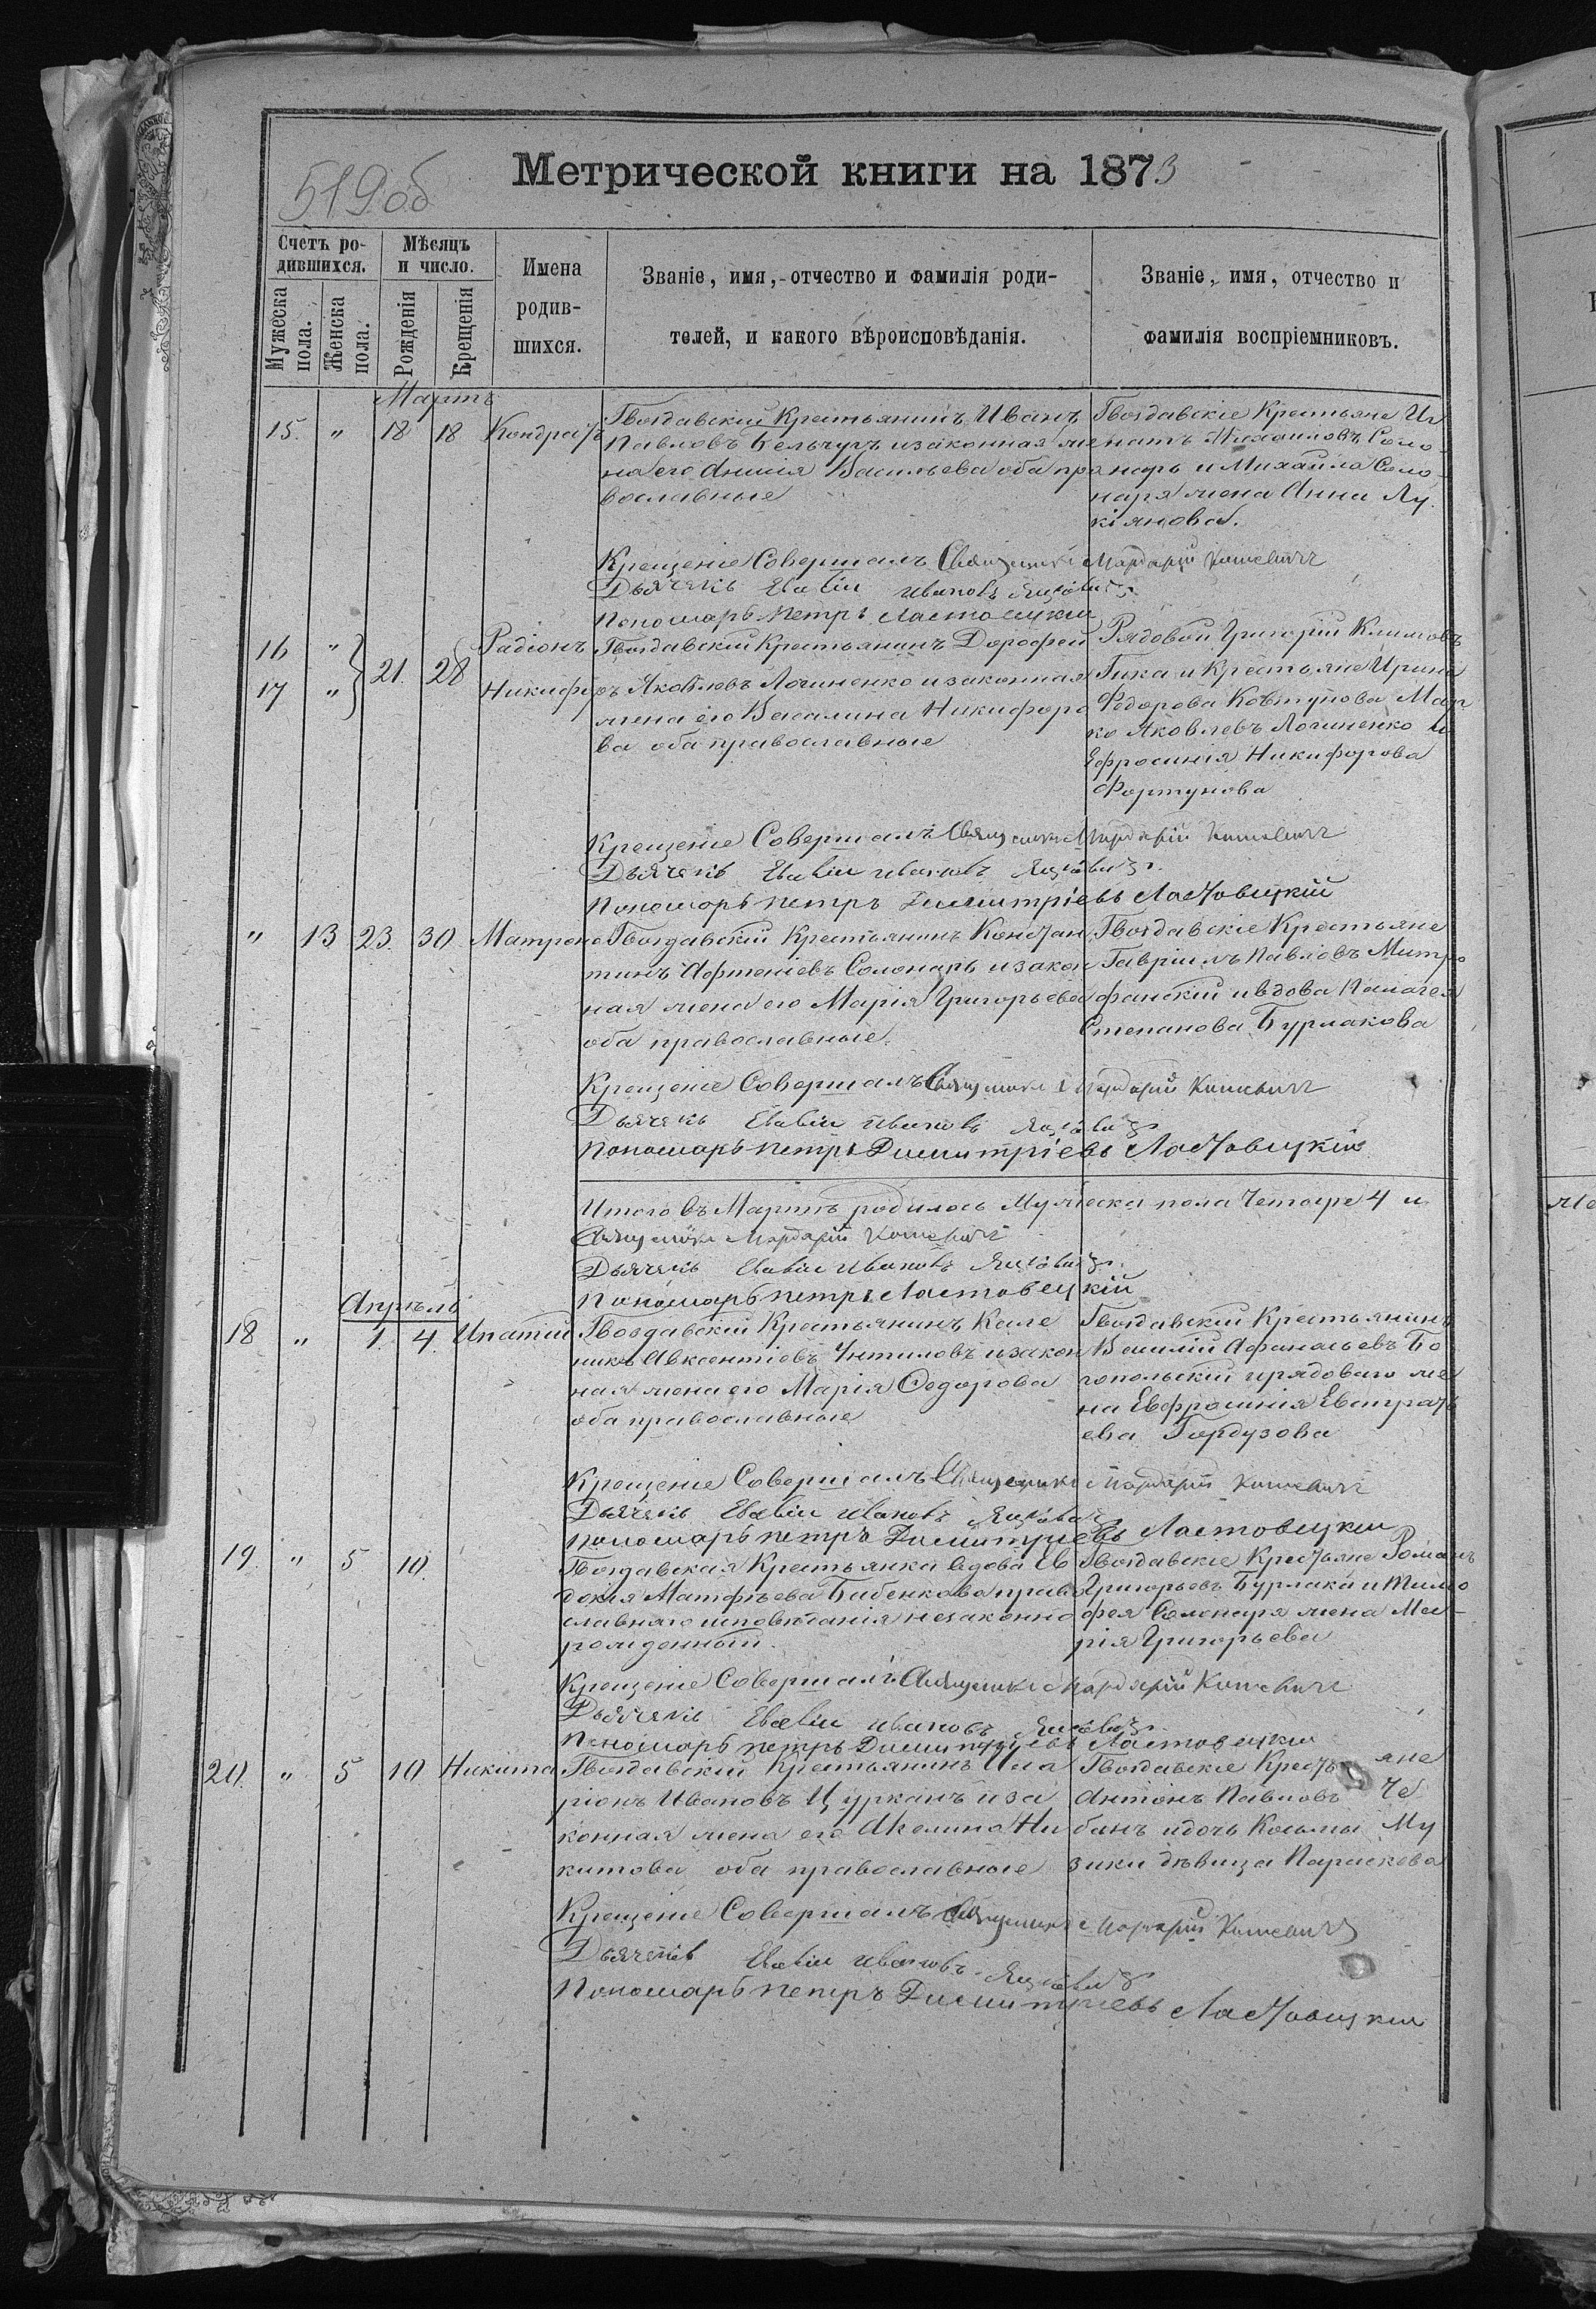 519 об
Метрической книги на 1873
Счетъ родившихся.
Мужеска пола.
Женска пола.
Мѣсяцъ и число.
Рожденія
Крещенія
Имена родившихся.
Званіе, имя, отчество и фамилія родителей, и какого вѣроисповѣданія.
Званіе, имя, отчество и фамилія воспріемниковъ.
Мартъ
15. " 18 18 Кондратъ
Гвоздавскій Крестьянинъ Иванъ
Павловъ Бельчугъ и законная же
на его Анисія Васильева оба пра
вославные
Гвоздавскіе Крестьяне Иг
натъ Михаиловъ Соло
наръ и Михаила Соло
наря жена Анна Лу
кіянова.
Крещеніе Совершалъ Священникъ Мардарій
Дьячекъ Иванов
Пономарь Петръ Ластовецкій
16 " 21. 28 Радіонъ
17 " Никифоръ
Гвоздавскій Крестьянинъ Дорофей
Яковлевъ Логиненко и законная
жена его Васалина Никифоро
ва оба православные
Рядовой Григорій Климовъ
Гика и Крестьяне Ирина
Федорова Ковтунова Мар
ко Яковлевъ Логиненко и
Ефросинія Никифорова
Фортунова
Крещеніе Совершалъ Священникъ Мардарій
Дьячекъ Иванов
Пономарь Петръ Димитріевъ Ластовецкій
" 13 23. 30 Матрона
Гвоздавскій Крестьянинъ Констан
тинъ Афтеніевъ Солонарь и закон
ная жена его Марія Григорьева
оба православные.
Гвоздавскіе Крестьяне
Гавріилъ Павловъ Митро
фанскій и вдова Пелагея
Степанова Бурлакова
Крещеніе Совершалъ Священникъ Мардарій
Дьячекъ Иванов
Пономарь Петръ Димитріевъ Ластовецкій
Итого въ Мартѣ родилось Мужеска пола Четыре 4 и
Священникъ Мардарій
Дьячекъ Иванов
Пономарь Петръ Ластовецкій
Апрѣль
18 " 1. 4. Ипатій
Гвоздавскій Крестьянинъ Кале
никъ Авксентіевъ Унтиловъ и закон
ная жена его Марія Федорова
оба православные
Гвоздавскій Крестьянинъ
Василій Афанасьевъ Бо
гопольскій и рядоваго же
на Евфросинія Евстрать
ева Гордузова
Крещеніе Совершалъ Священникъ Мардарій
Дьячекъ Иванов
Пономарь Петръ Димитріевъ Ластовецкій
19. " 5 10.
Гвоздавская Крестьянка вдова Ев
докія Матфѣева Бабенкова право
славнаго исповѣданія незаконно
рожденный.
Гвоздавскіе Крестьяне Романъ
Григорьевъ Бурлака и Тимо
фея Солонаря жена Ма-
рія Григорьева
Крещеніе Совершалъ Священникъ Мардарій
Дьячекъ Иванов
Пономарь Петръ Димитріевъ Ластовецкій
20. " 5 10 Никита
Гвоздавскій Крестьянинъ Ила
ріонъ Ивановъ Цурканъ и за
конная жена его Акелина Ни
китова оба православные
Гвоздавскіе Крестьяне
Антонъ Павловъ Че
банъ и дочь Косьмы Му
зики дѣвица Параскева
Крещеніе Совершалъ Священникъ Мардарій
Дьячекъ Иванов
Пономарь Петръ Димитріевъ Ластовецкій